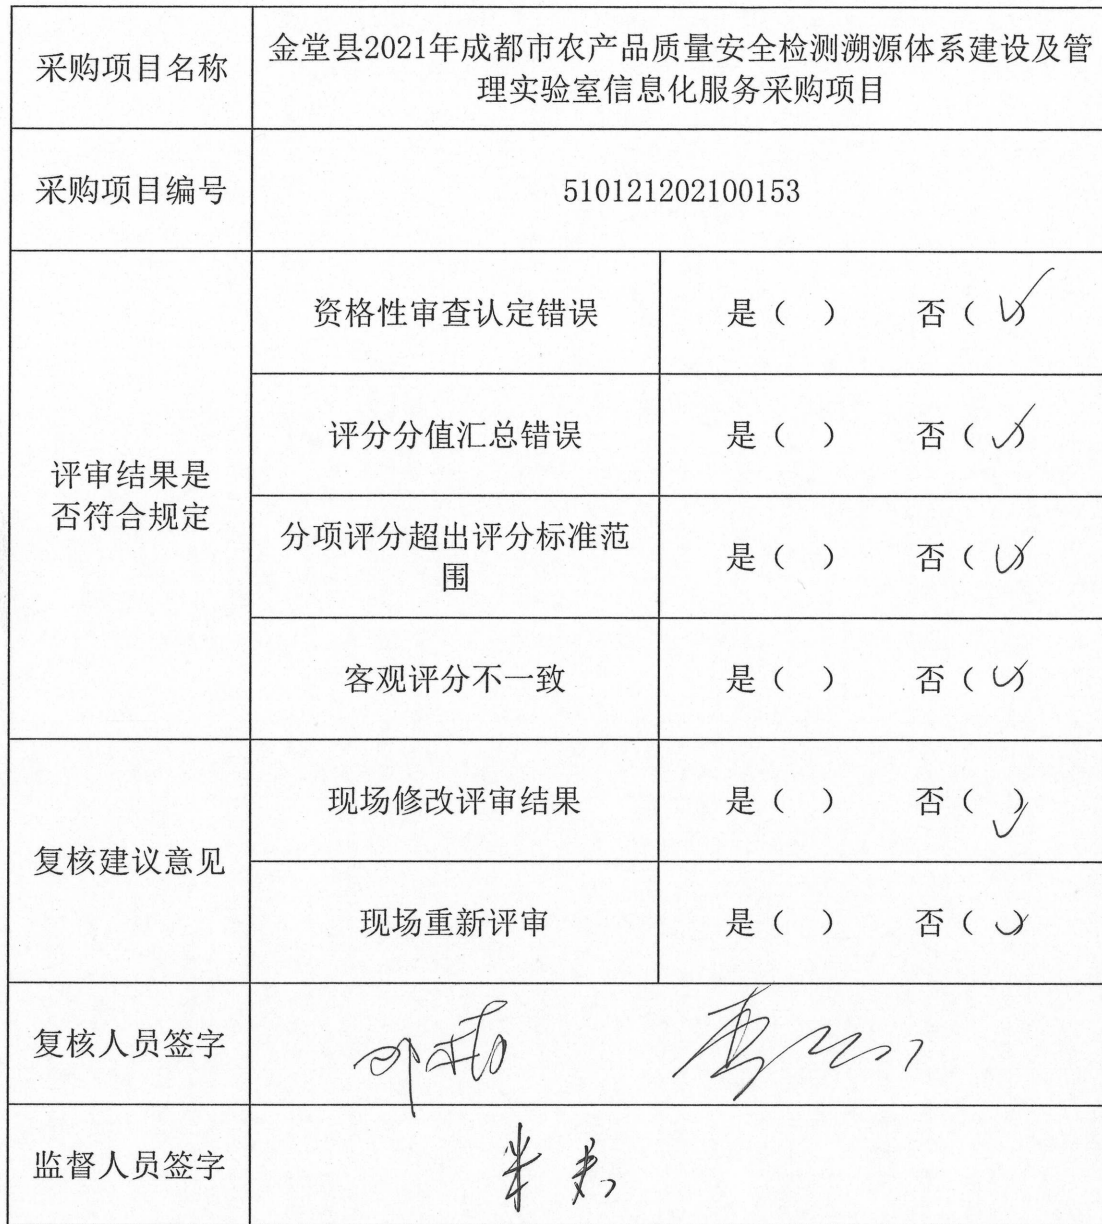 采购项目名称
金堂县2021年成都市农产品质量安全检测溯源体系建设及管
理实验室信息化服务采购项目
采购项目编号
510121202100153
评审结果是
否符合规定
资格性审查认定错误
是（ ） 否（✓）
评分分值汇总错误
是（ ） 否（✓）
分项评分超出评分标准范
围
是（ ） 否（✓）
客观评分不一致
是（ ） 否（✓）
复核建议意见
现场修改评审结果
是（ ） 否（✓）
现场重新评审
是（ ） 否（✓）
复核人员签字
监督人员签字